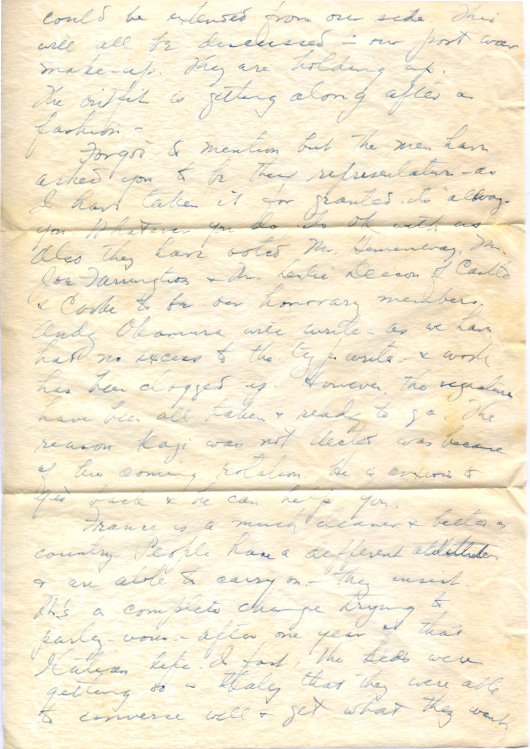 could be extended from our side. This
will all be discussed - our post war
make-up. They are holding up.
The outfit is getting along after a
fashion -
Forgot to mention but the men have
asked you to be their representative - as
I have taken it for granted. its always
you. Whatever you do its OK with us
Also they have voted Mr. Hemenway, Mr.
Joe Farrington & Mr. Leslie Deacon of Castle
& Cooke to be our honorary members.
Andy Okamura will write - as we have
had no excess to the typewrite - & work
has been clogged up. However, the signatures
have been all taken & ready to go. The
reason Kagi was not elected was because
of his coming rotation. He is anxious to
get back & he can help you.
France is a much cleaner & better
country. People have a different attitude
& are able to carry on - they
It's a complete change trying to
parley-vous - after one year of that
Italian life. In fact, the lads were
getting so in Italy that they were able
to converse well & get what they want